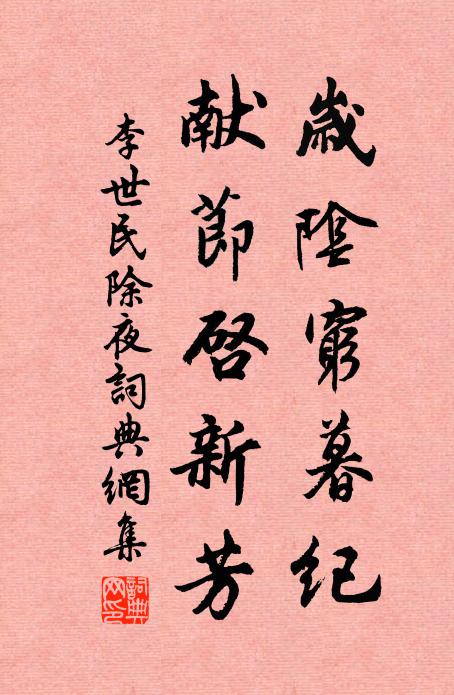 歲陰窮暮紀
献節啓新芳
李世民除夜詞典網集
詞典
网印